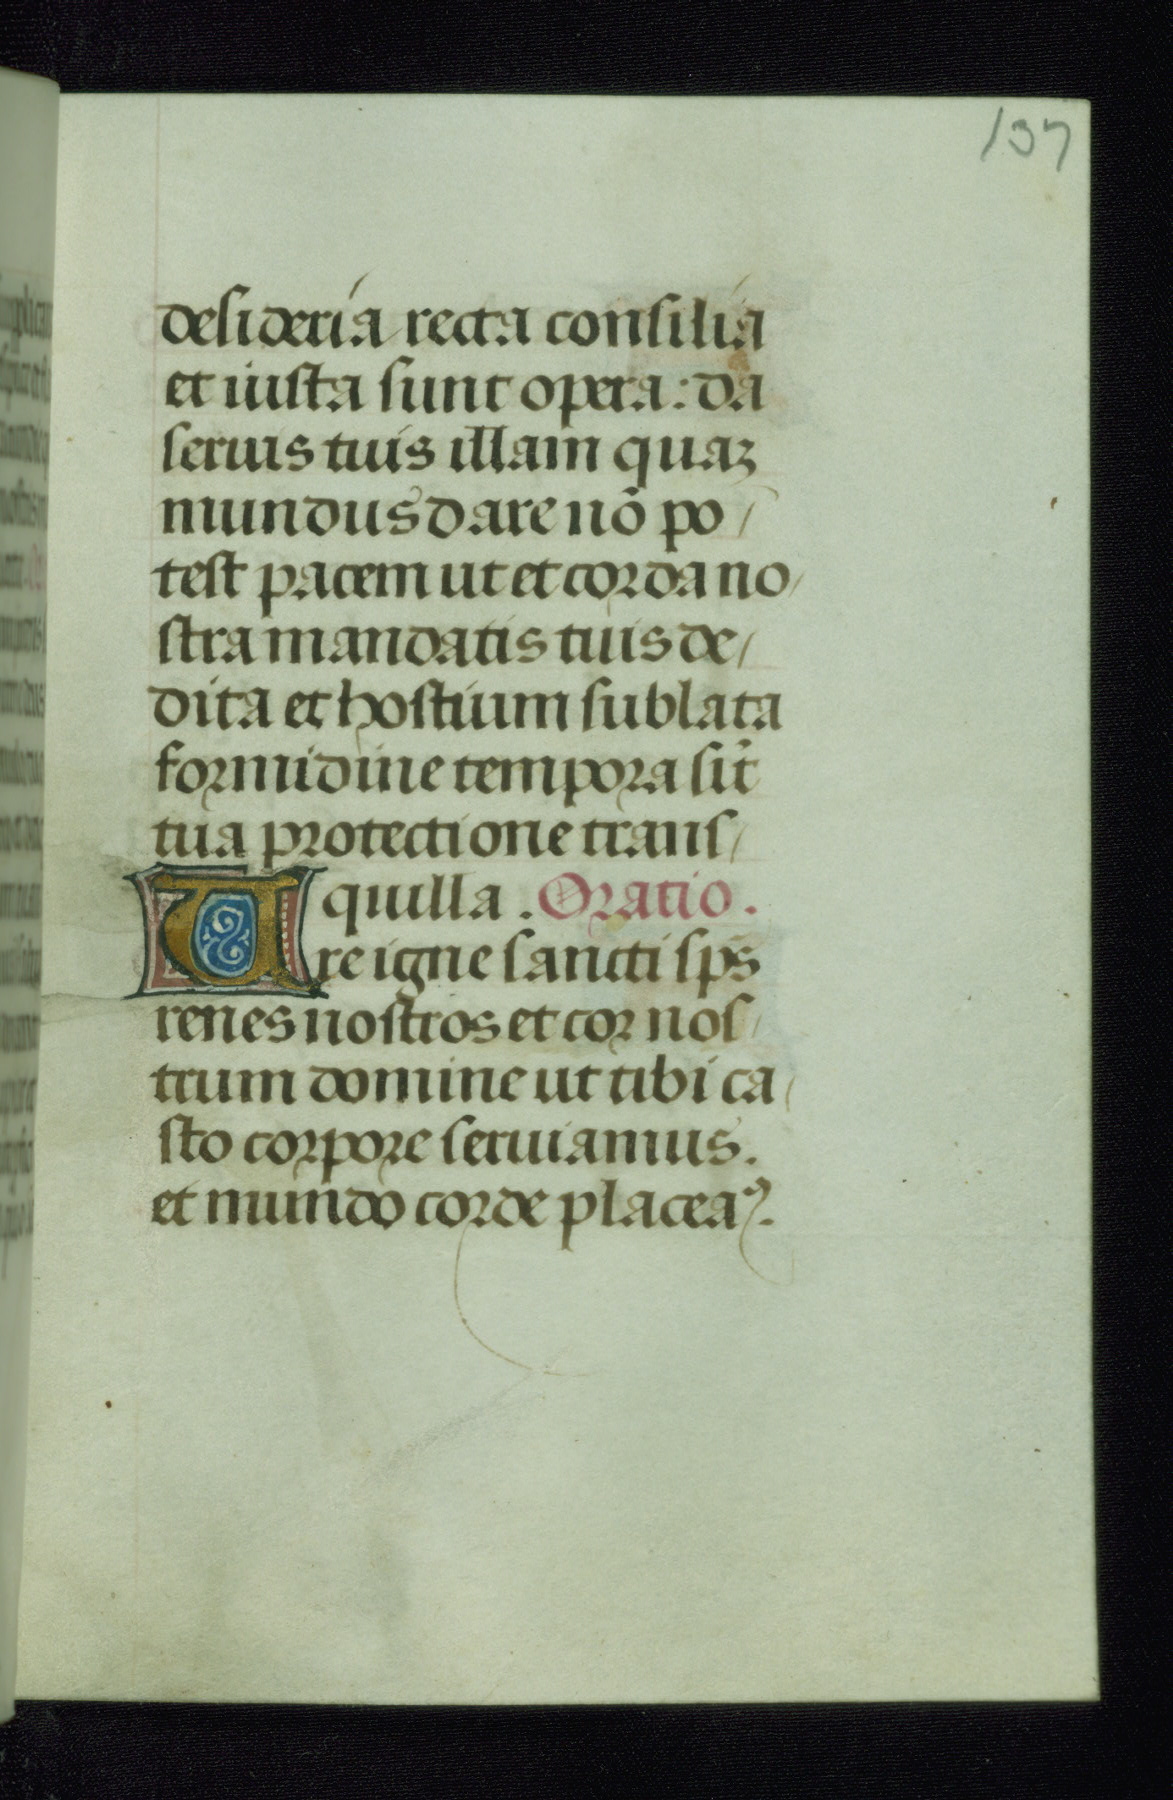 137
desideria recta consilia
et iusta sunt opera: da
seruis tuis illam quaʒ
mundus dare nō po/
test pacem ut et corda no/
stra mandatis tuis de/
dita et hostium sublata
formidine tempora sīt
tua protectione trans/
quilla. Oratio.
Ure igne sancti sps̄
renes nostros et cor nos/
trum domine ut tibi ca/
sto corpore seruiamus.
et mundo corde placeaꝰ.